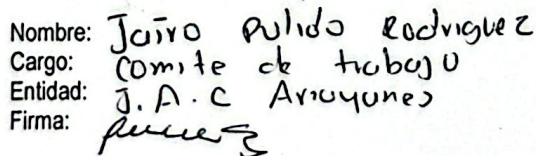 Nombre: Jairo Pulido Rodriguez
Cargo: Comite de trabajo
Entidad: J.A.C Arrayanes
Firma: